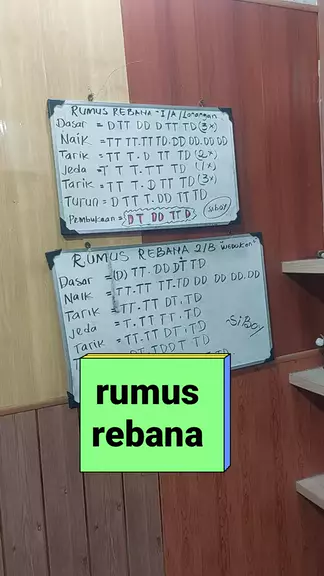 RUMUS REBANA = I/A/Lanangan
Dasar = DTT DD D TT TD (3x)
Naik = TT TT.TT TD.DD DD.DD DD
Tarik = TT T.D TT TD (2x)
jeda = T T T.TT TD (1x)
Tarik = TT T.D TT TD (3x)
Turun = D TT T.DD TT TD
Pembukaan = DT DD TT D
siboy
RUMUS REBANA 2/B
Dasar = (D) TT.DD DT TD
Naik = TT.TT TT.TD DD DD DD.DD
Tarik = TT.TT DT.TD
jeda = T.TT TT.TD
Tarik = TT.TT DT.TD
SiBoy
rumus
rebana